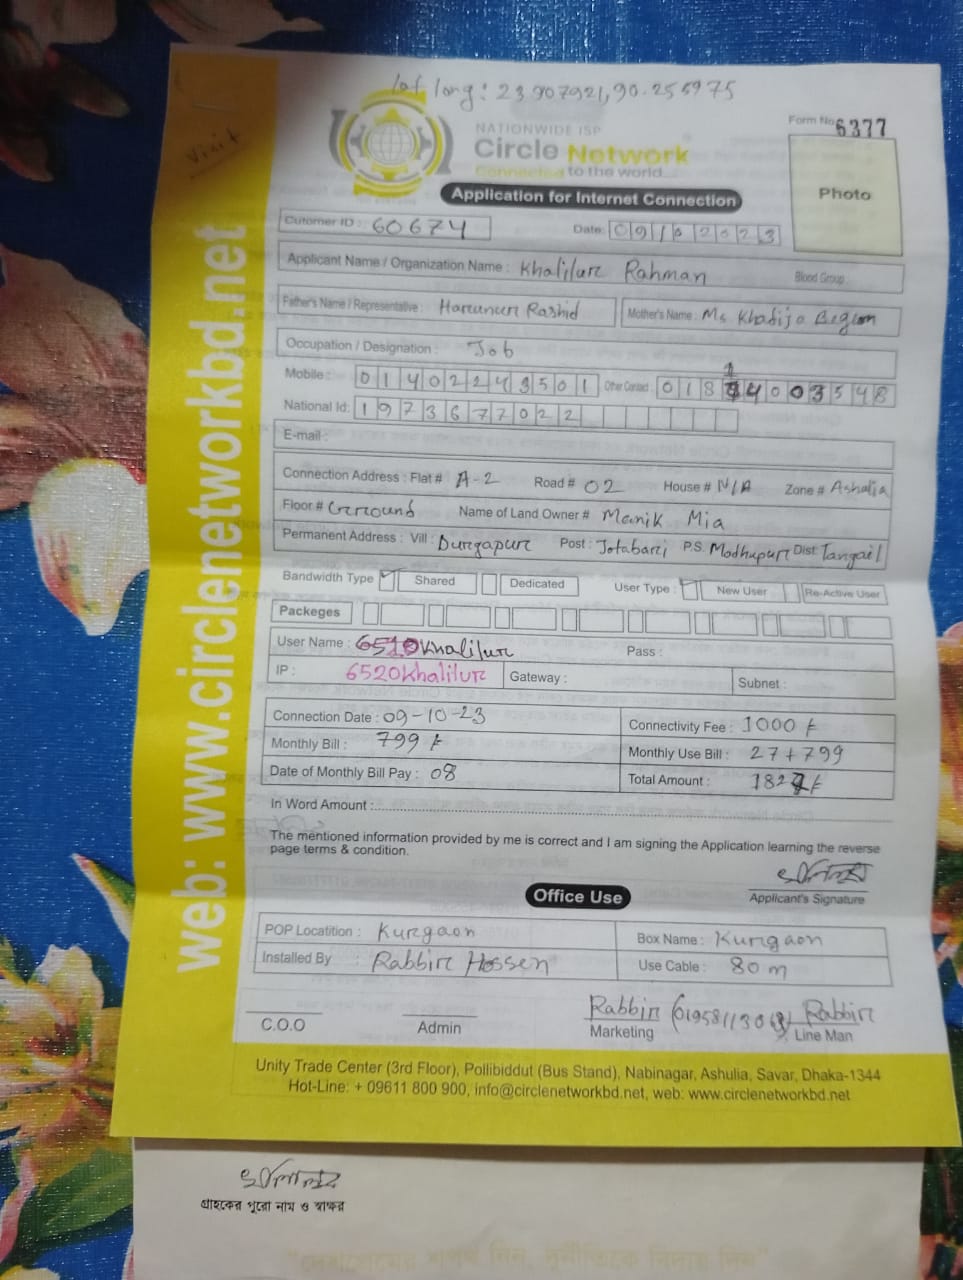 lat long: 23.907921, 90.256975
Visit
NATIONWIDE ISP
Form No 6377
Circle Network
Connected to the world...
Photo
Application for Internet Connection
Cutomer ID : 60674 Date: 09102023
Applicant Name / Organization Name : Khalilur Rahman Blood Group :
Father's Name / Representative : Harunur Rashid Mother's Name : Ms Khadija Begum
Occupation / Designation : Job
Mobile : 01402243501 Other Contact :
National Id: 1973677022
E-mail :
Connection Address : Flat # A-2 Road # 02 House # N/A Zone # Ashulia
Floor # Ground Name of Land Owner # Manik Mia
Permanent Address : Vill : Durgapur Post : Jotabari P.S. Modhupur Dist: Tangail
Bandwidth Type Shared Dedicated User Type : New User Re-Active User
Packeges
User Name : Pass :
IP : 6520khalilur Gateway : Subnet :
Connection Date : 09-10-23 Connectivity Fee : 1000 /-
Monthly Bill : 799 /- Monthly Use Bill : 27+799
Date of Monthly Bill Pay : 08 Total Amount :
In Word Amount :
The mentioned information provided by me is correct and I am signing the Application learning the reverse
page terms & condition.
Applicant's Signature
Office Use
POP Locatition : Kurgaon Box Name : Kurgaon
Installed By : Rabbir Hossen Use Cable : 80 m
Rabbir Rabbir
C.O.O Admin Marketing Line Man
Unity Trade Center (3rd Floor), Pollibiddut (Bus Stand), Nabinagar, Ashulia, Savar, Dhaka-1344
Hot-Line: + 09611 800 900, info@circlenetworkbd.net, web: www.circlenetworkbd.net
web: www.circlenetworkbd.net
গ্রাহকের পুরো নাম ও স্বাক্ষর